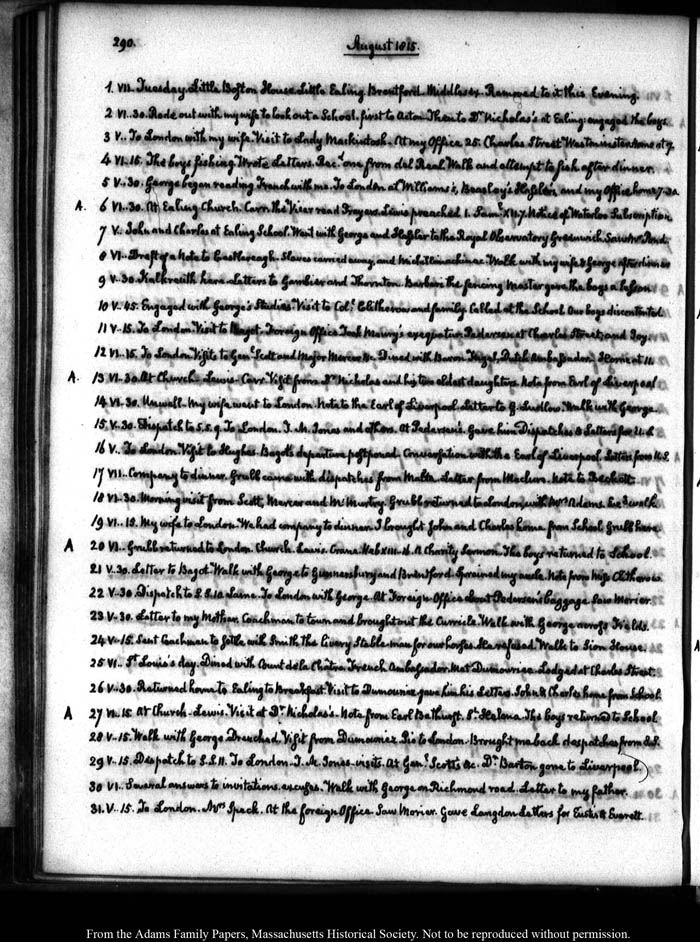 290.
August 1815.
1. VII. Tuesday. Little Boston House Little Ealing Brentford. Middlesex. Removed to it this Evening.
2 VI..30. Rode out with my wife to look out a School. first to Acton Then to Dr Nicholas's at Ealing: engaged the boys
3 V.. To London with my wife. Visit to Lady Mackintosh. At my Office 25. Charles Street Westminster home at 7.
4 VI..15. The boys fishing Wrote Letters. Recd one from del Real. Walk and attempt to fish after dinner.
5 V..30. George began reading French with me. To London at Williams's, Beasley's Hassler's and my Office home 7.30
A. 6 VI..30. At Ealing Church. Carr. the Vicar read Prayers Lewis preached 1. Sam. XII.7. Notice of Waterloo Subscription
7 V. John and Charles at Ealing School. Went with George and Hassler to the Royal Observatory Greenwich. Saw Mr Pond.
8 VI.. Draft of a Note to Castlereagh. Slaves carried away, and Michillimackinac. Walk with my wife & George after dinner
9 V..30. Kalkreuth here. Letters to Gambier and Thornton. Barbieri the fencing Master gave the boys a lesson
10 V..45. Engaged with George's Studies. Visit to Coll Clitherow and family. Called at the School. Our boys discontented.
11 V..15. To London. Visit to Bagot. Foreign Office. Took Maury's exequatur. Pedersen at Charles Street; and Joy.
12 VI..15. To London. Visit to Genl Scott and Major Mercer &c. Dined with Baron Fagel, Dutch Ambassador. Home at 11.
A. 13 VI..30. At Church. Lewis. Carr. Visit from Dr Nicholas and his two eldest daughters. Note from Earl of Liverpool
14 VI..30. Unwell. My wife went to London. Note to the Earl of Liverpool. Letter to G. Ludlow. Walk with George.
15 V..30. Dispatch to S.S. 9. To London. J. M. Jones and others. At Pedersen's. Gave him Dispatches & Letters for U.S
16 V.. To London. Visit to Hughes. Bagot's departure postponed. Conversation with the Earl of Liverpool. Letters from U.S.
17 VII.. Company to dinner. Grubb came with dispatches from Malta. Letter from Maclure. Note to Beckett.
18 VI..30. Morning visit from Scott, Mercer and McMurtry. Grubb returned to London, with Mrs Adams. walk
19 VI..15. My wife to London. We had company to dinner. I brought John and Charles home from School. Grubb here
A 20 VI.. Grubb returned to London. Church. Lewis. Crane. Heb. XIII.16. A Charity Sermon. The boys returned to School.
21 V..30. Letter to Bagot. Walk with George to Gunnersbury and Brentford. Sprained my ancle. Note from Miss Clitherow.
22 V..30. Dispatch to S.S. 10. Same. To London with George. At Foreign Office about Pedersen's baggage. Saw Morier.
23 V..30. Letter to my Mother. Coachman to town and brought out the Curricle. Walk with George across Fields.
24 V..15. Sent Coachman to settle with Smith the Livery Stable-man for our horses. He refused. Walk to Sion House.
25 VI.. St Louis's day. Dined with Count de la Chatre. French Ambassador. Met Dumouriez. Lodged at Charles Street.
26 V..30. Returned home to Ealing to breakfast. Visit to Dumouriez gave him his Letters. John & Charles home from School
A 27 VI..15 At Church. Lewis. Visit at Dr Nicholas's. Note from Earl Bathurst. St Helena. The boys returned to School
28 V..15. Walk with George. Drenched. Visit from Dumouriez. to London. Brought me back despatches from S.S.
29 V..15. Despatch to S.S. 11. To London. J. M. Jones visits. At Genl Scott's &c. Dr Barton gone to Liverpool.
30 VI.. Several answers to invitations. excuses. Walk with George on Richmond road. Letter to my father.
31. V..15. To London. Mrs Speck. At the foreign Office. Saw Morier. Gave Langdon Letters for Eustis & Everett.
From the Adams Family Papers, Massachusetts Historical Society. Not to be reproduced without permission.